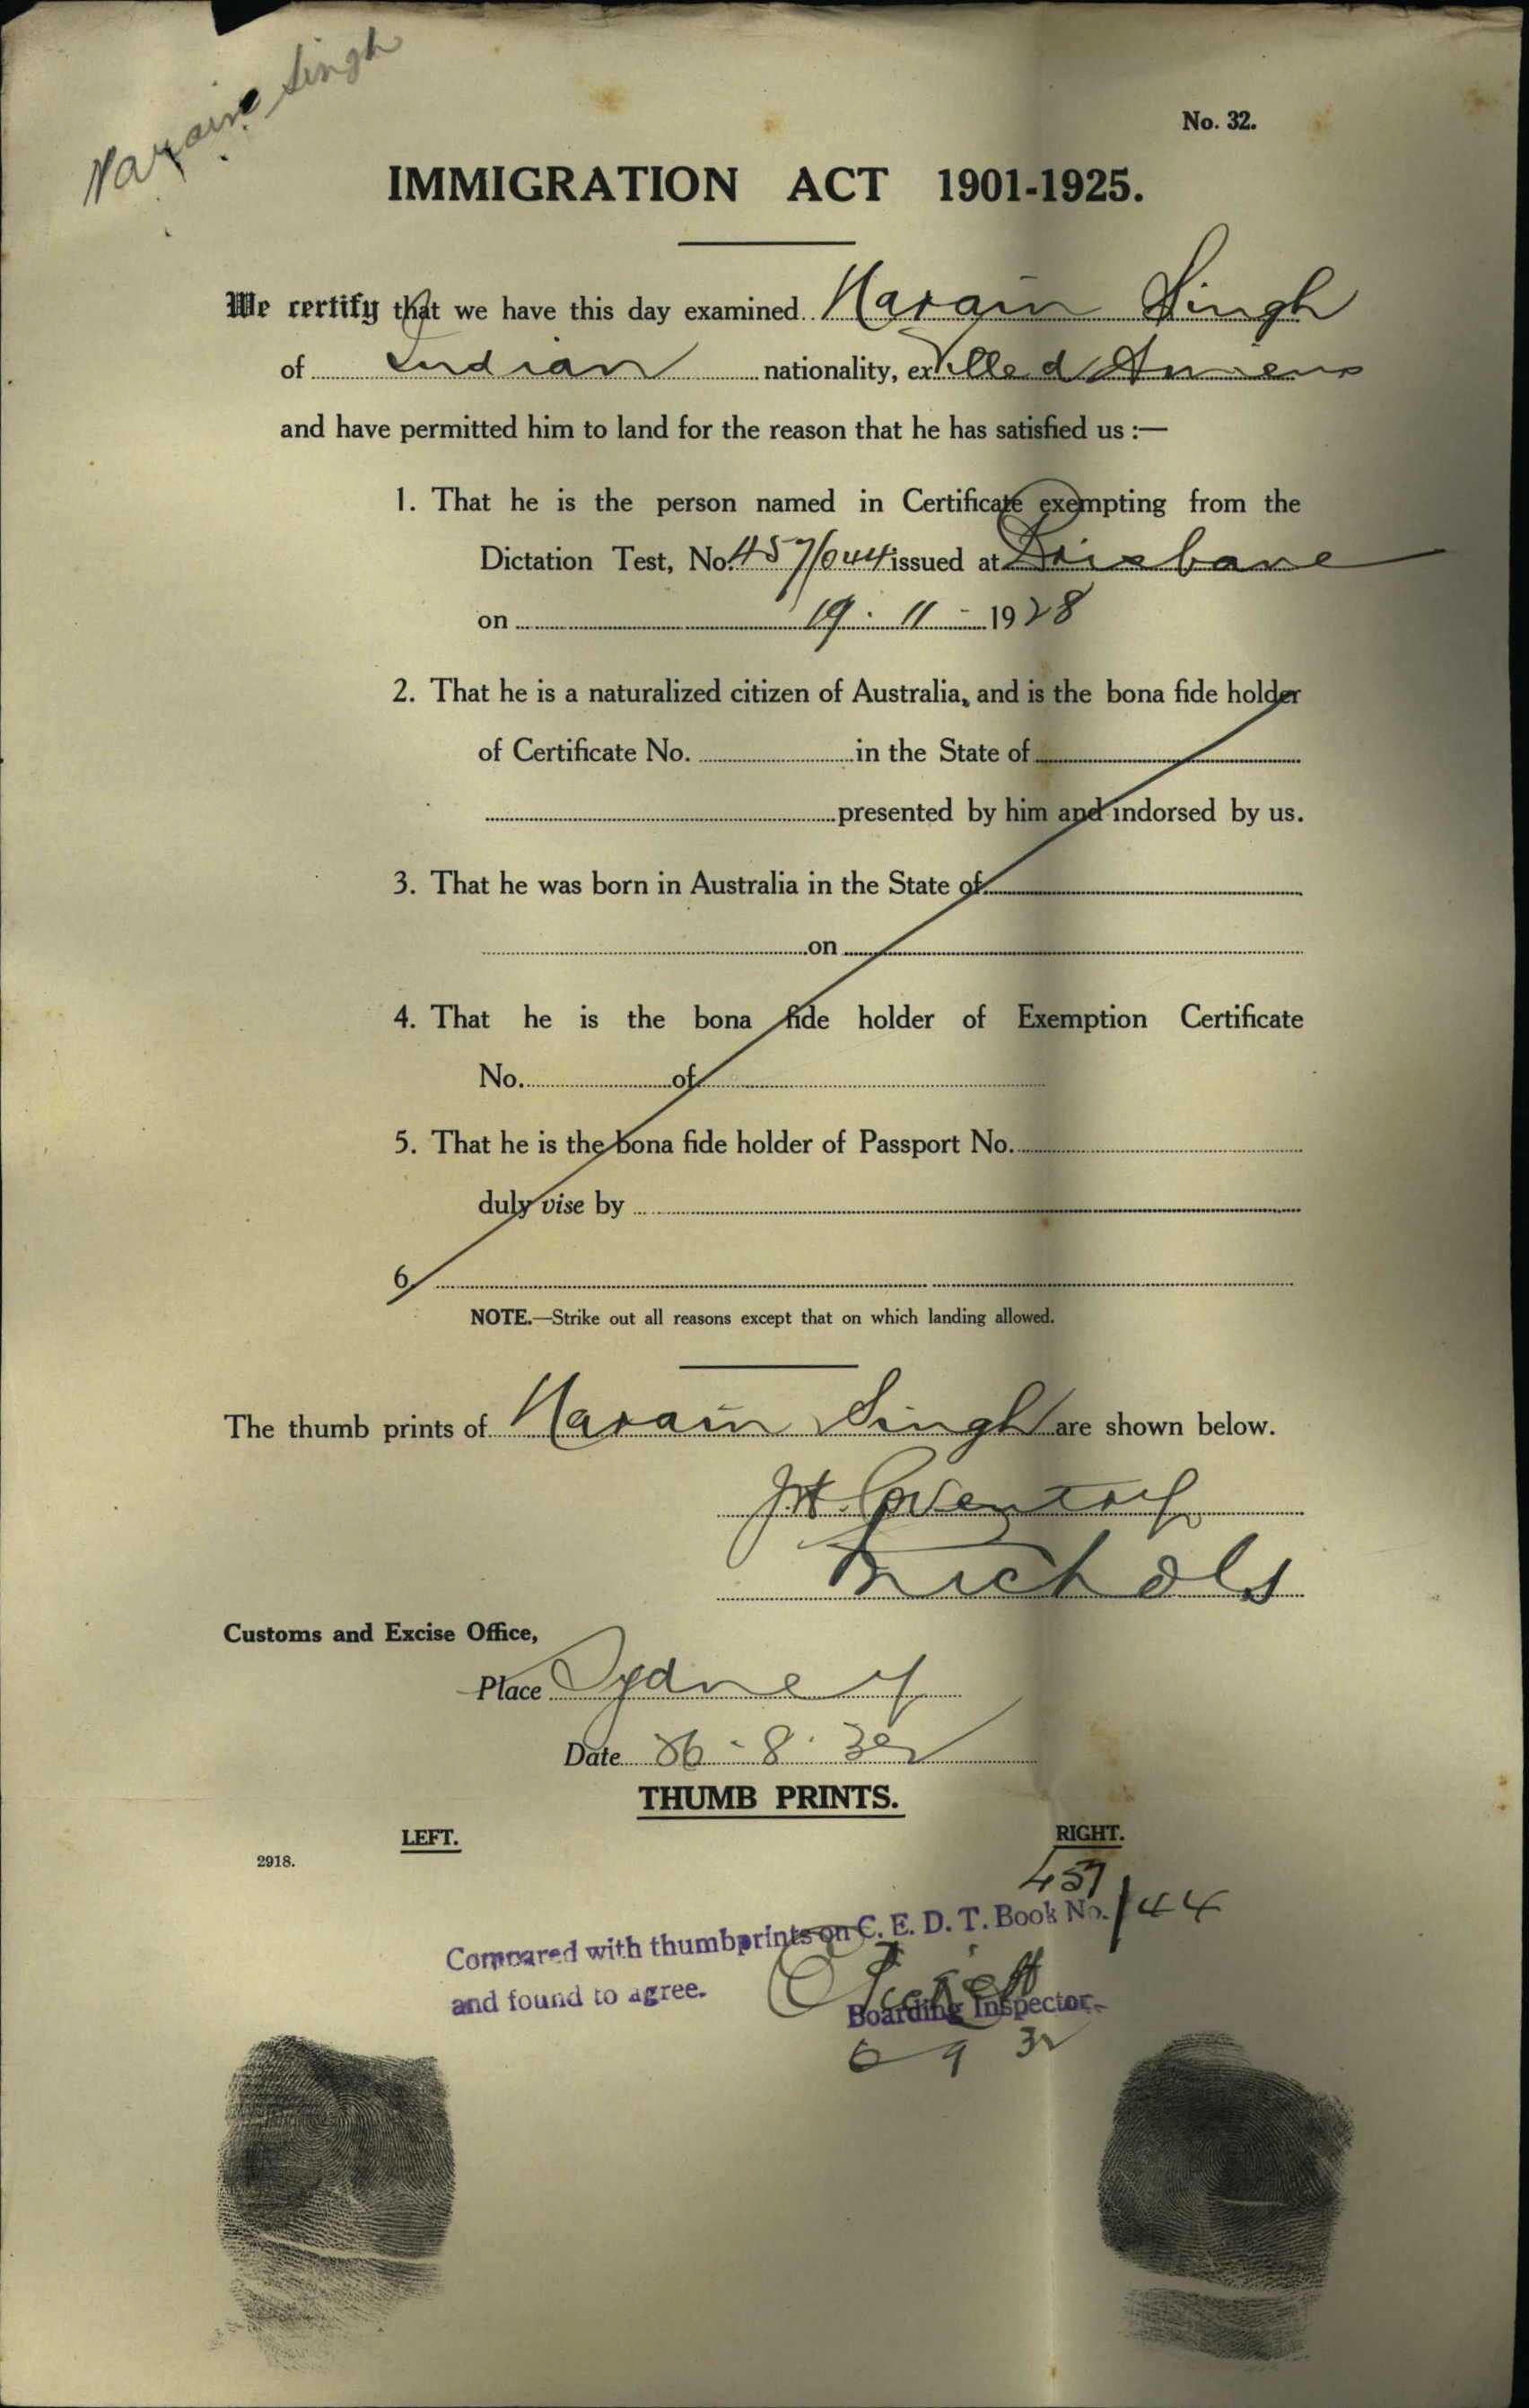 Naraine Singh
No. 32.
IMMIGRATION ACT 1901-1925.
We certify that we have this day examined Narain Singh
of Indian nationality, ex Ville d Amiens
and have permitted him to land for the reason that he has satisfied us :—
1. That he is the person named in Certificate exempting from the
Dictation Test, No. 457/044 issued at Brisbane
on 19 - 11 - 1928
2. That he is a naturalized citizen of Australia, and is the bona fide holder
of Certificate No. in the State of
presented by him and indorsed by us.
3. That he was born in Australia in the State of
on
4. That he is the bona fide holder of Exemption Certificate
No. of
5. That he is the bona fide holder of Passport No.
duly vise by
6.
NOTE.—Strike out all reasons except that on which landing allowed.
The thumb prints of Narain Singh are shown below.
Coventry
Nichols
Customs and Excise Office,
Place Sydney
Date 26 - 8 - 32
THUMB PRINTS.
LEFT. RIGHT.
2918.
457/44
Compared with thumbprints on C. E. D. T. Book No.
and found to agree.
Boarding Inspector.
6 9 32